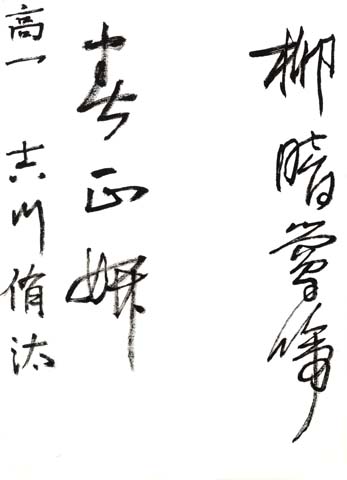 柳暗鶯啼
春正妍
高一 吉川侑汰